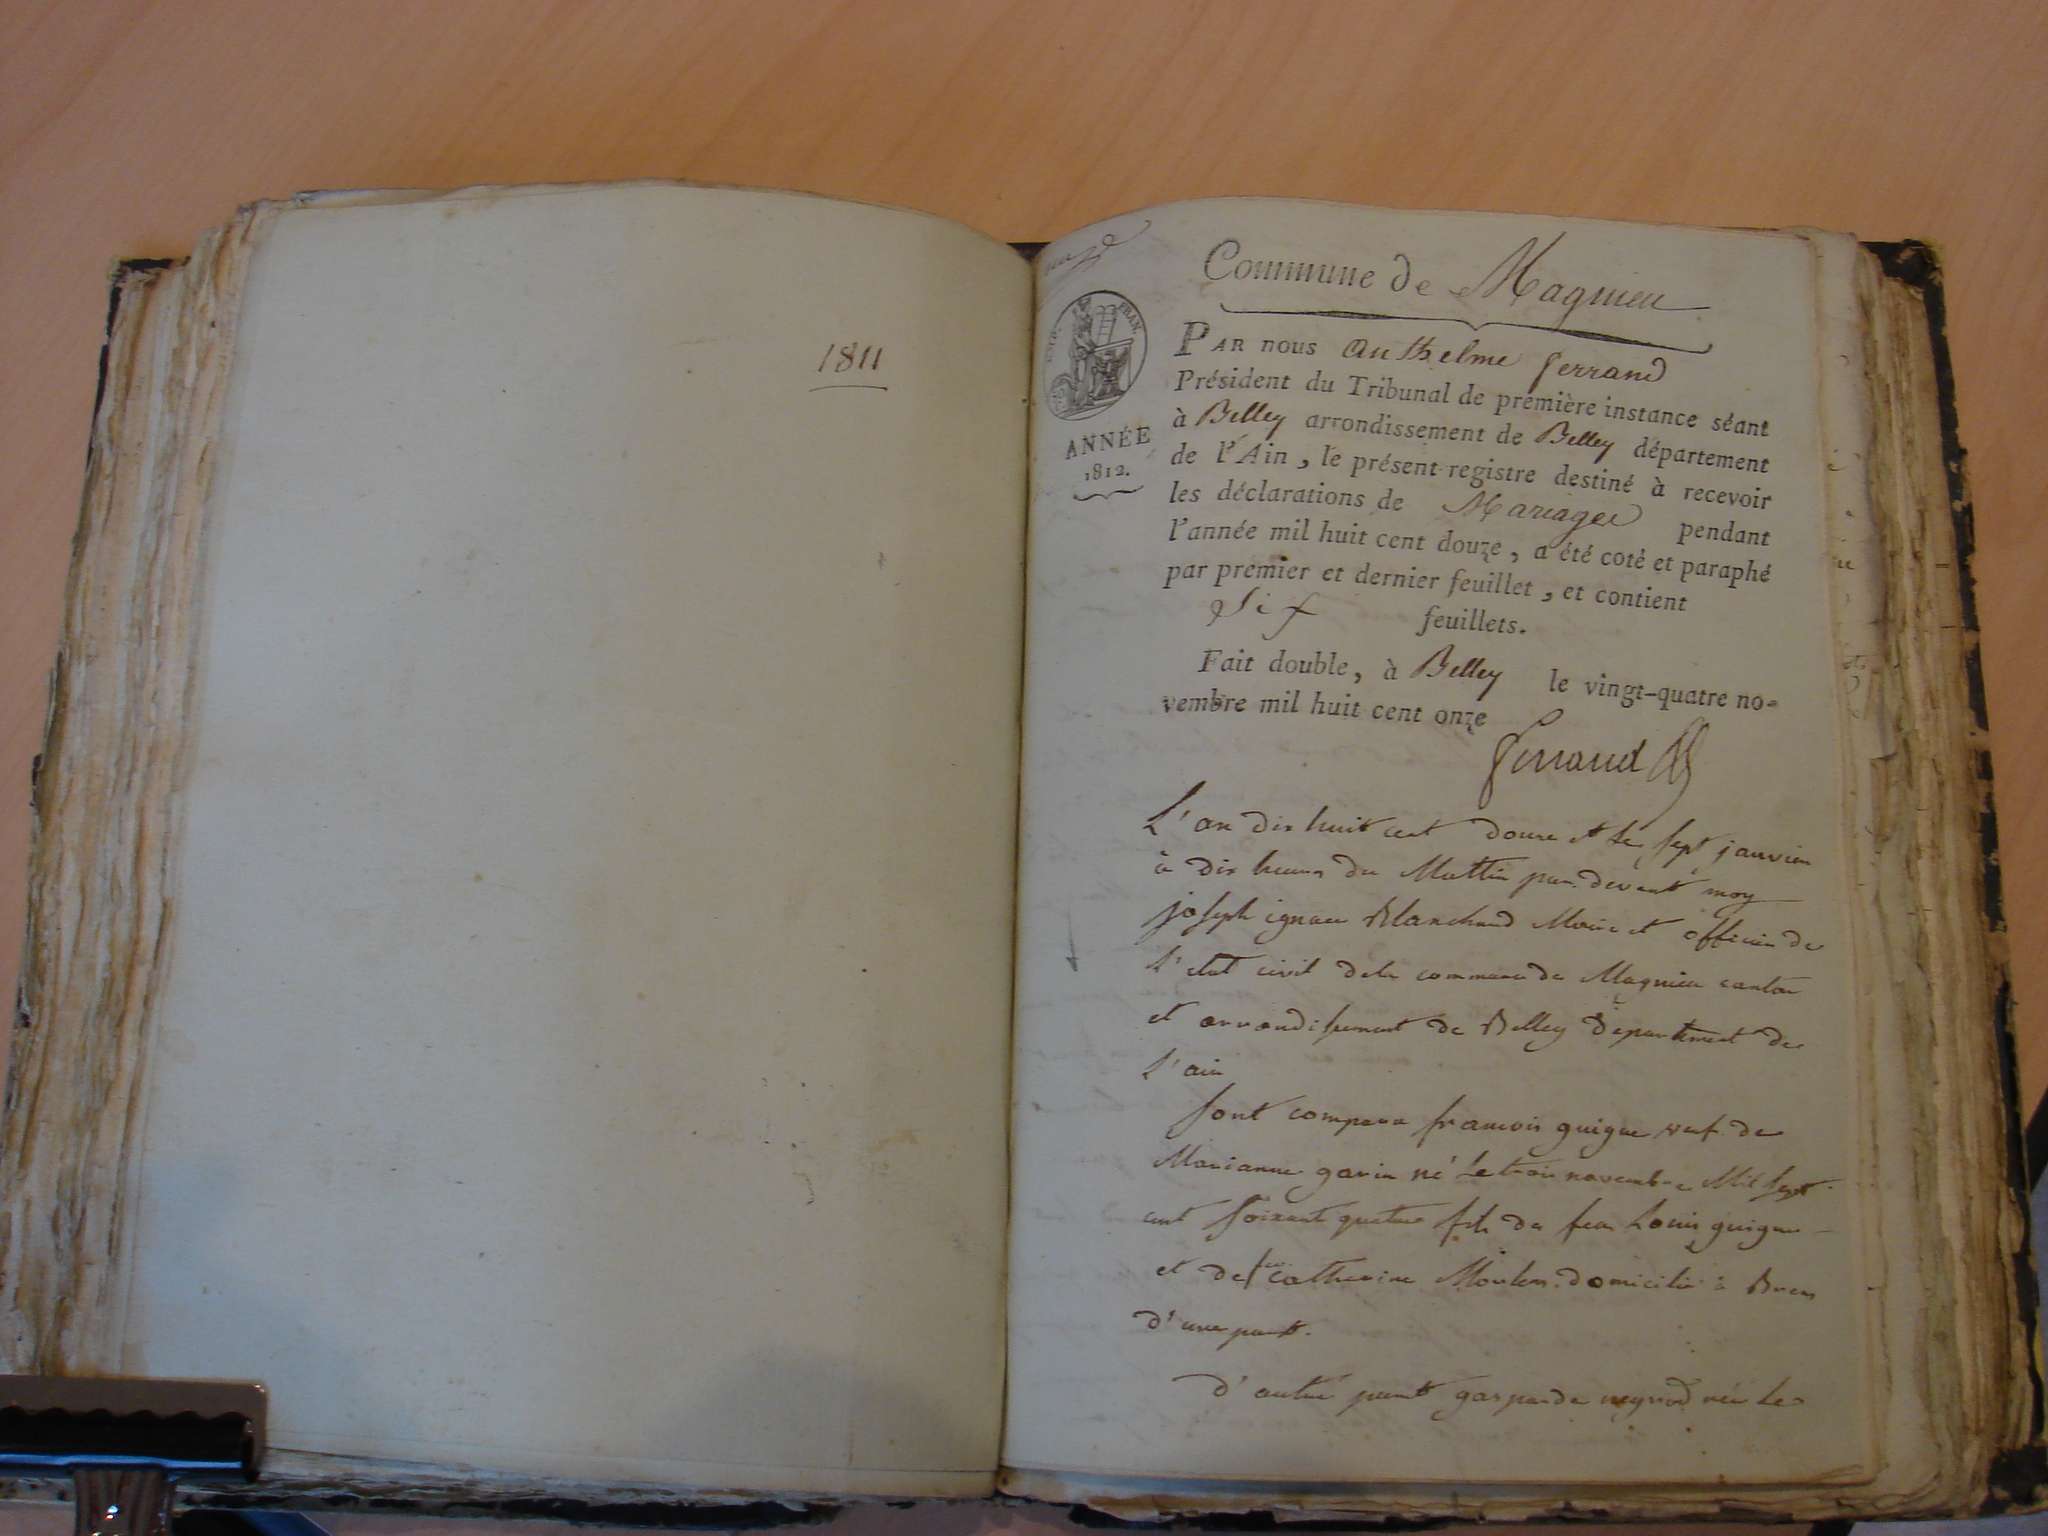 1811
Commune de Magnieu
FRAN.
ANNÉE
1812.
PAR nous anthelme ferrand
Président du Tribunal de première instance séant
à Belley arrondissement de Belley département
de l'Ain, le présent registre destiné à recevoir
les déclarations de Mariages pendant
l'année mil huit cent douze, a été coté et paraphé
par premier et dernier feuillet, et contient
Six feuillets.
Fait double, à Belley le vingt-quatre no-
vembre mil huit cent onze
ferrand
L'an dix huit cent douze et le sept janvier
à dix heures du Mattin par devant moy
joseph ignace Blanchard Maire et officier de
L'etat civil dela commune de Magnieu canton
et arrondissement de Belley Departement de
L'ain
sont comparu francois guigue veuf de
Marianne gavin né Le trois novembre Mil sept
cent soixant quatre fils de feu Louis guigue
et de feu catherine domicilié à Brens
d'une part.
D'autre part gasparde née Le